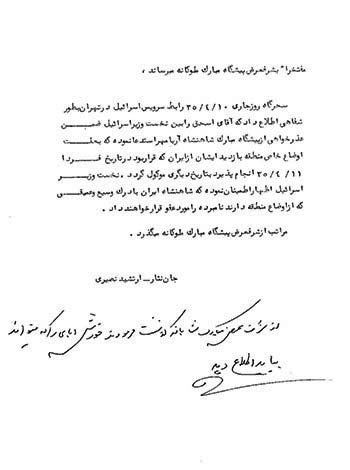 مفتخراً بشرفعرض پیشگاه مبارك ملوکانه میرساند ،
سحرگاه روزجاری ۳۵/٤/۱۰ رابط سرویس اسرائیل درتهران بطور
شفاهی اطلاع داد که آقای اسحق رابین نخست وزیراسرائیل ضمن
عذرخواهی ازپیشگاه مبارك شاهنشاه آریامهراستدعا نموده که بعلت
اوضاع خاص منطقه بازدید ایشان ازایران که قراربود درتاریخ فردا
۳۵/٤/۱۱ انجام پذیرد بتاریخ دیگری موکول گردد . نخست وزیر
اسرائیل اظهاراطمینان نموده که شاهنشاه ایران بادرك وسیع وعمیقی
که ازاوضاع منطقه دارند نامبرده رامورد عفو قرارخواهند داد .
مراتب ازشرفعرض پیشگاه مبارك ملوکانه میگذرد .
جان نثار – ارتشبد نصیری
از شرفعرض مبارک شاهانه گذشت فرمودند
بیاید اطلاع دهید